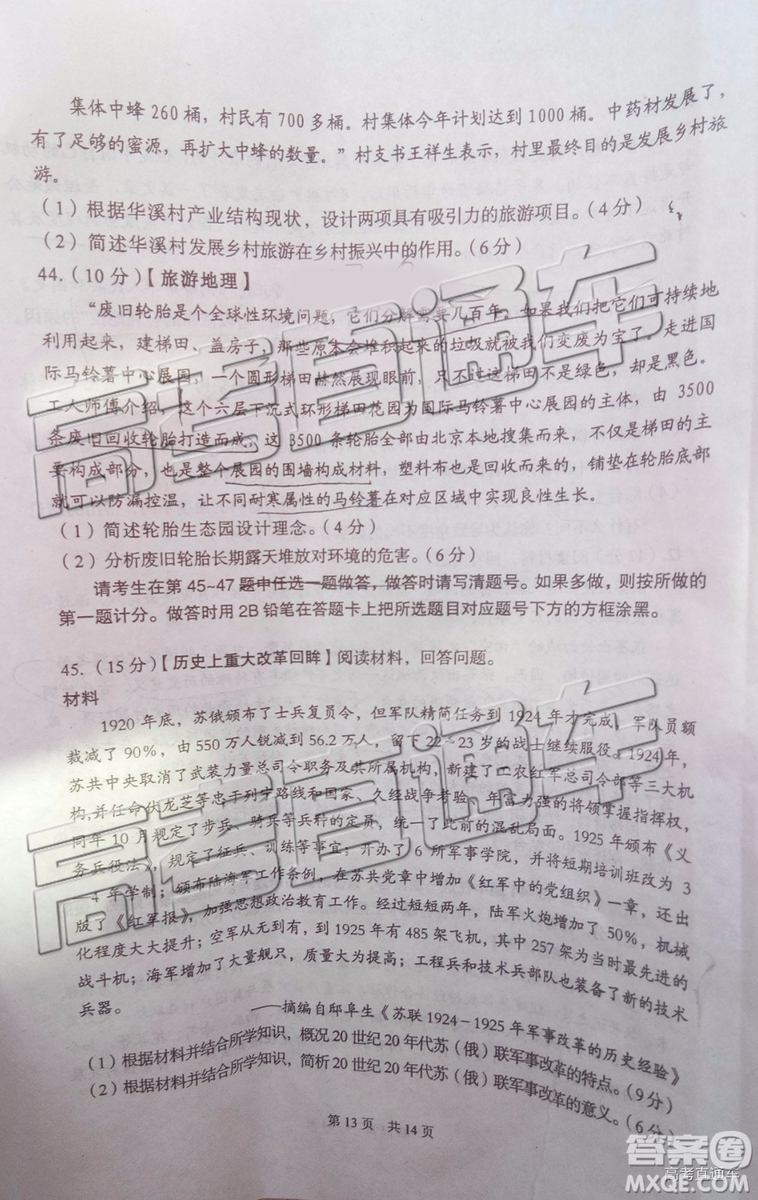 集体中蜂 260 桶，村民有 700 多桶。村集体今年计划达到 1000 桶。中药材发展了，
有了足够的蜜源，再扩大中蜂的数量。”村支书王祥生表示，村里最终目的是发展乡村旅
游。
（1）根据华溪村产业结构现状，设计两项具有吸引力的旅游项目。（4 分）
（2）简述华溪村发展乡村旅游在乡村振兴中的作用。（6 分）
44.（10 分）【旅游地理】
“废旧轮胎是个全球性环境问题，它们分解需要几百年。如果我们把它们可持续地
利用起来，建梯田、盖房子，那些原本会堆积起来的垃圾就被我们变废为宝了。走进国
际马铃薯中心展园，一个圆形梯田赫然展现眼前，只不过这梯田不是绿色，却是黑色。
工人师傅介绍，这个六层下沉式环形梯田花园为国际马铃薯中心展园的主体，由 3500
条废旧回收轮胎打造而成。这 3500 条轮胎全部由北京本地搜集而来，不仅是梯田的主
要构成部分，也是整个展园的围墙构成材料，塑料布也是回收而来，铺垫在轮胎底部
就可以防漏控温，让不同耐寒属性的马铃薯在对应区域中实现良性生长。
（1）简述轮胎生态园设计理念。（4 分）
（2）分析废旧轮胎长期露天堆放对环境的危害。（6 分）
请考生在第 45~47 题中任选一题做答，做答时请写清题号。如果多做，则按所做的
第一题计分。做答时用 2B 铅笔在答题卡上把所选题目对应题号下方的方框涂黑。
45.（15 分）【历史上重大改革回眸】阅读材料，回答问题。
材料
1920 年底，苏俄颁布了士兵复员令，但军队精简任务到 1924 年才完成，军队员额
裁减了 90%，由 550 万人锐减到 56.2 万人，留下 22－23 岁的战士继续服役。1924 年，
苏共中央取消了武装力量总司令职务及其所属机构，新建了工农红军总司令部等三大机
构，并任命伏龙芝等忠于列宁路线和国家、久经战争考验、年富力强的将领掌握指挥权，
同年 10 月规定了步兵、骑兵等兵种的定员，统一此前的混乱局面。1925 年颁布《义
务兵役法》，规定了征兵、训练等事宜；开办了 6 所军事学院，并将短期培训班改为 3
4 年学制；颁布陆海军工作条例，在苏共党章中增加《红军中的党组织》一章，还出
版了《红军报》，加强思想政治教育工作。经过短短两年，陆军火炮增加了 50%，机械
化程度大大提升；空军从无到有，到 1925 年有 485 架飞机，其中 257 架为当时最先进的
战斗机；海军增加了大量舰只，质量大为提高；工程兵和技术兵部队也装备了新的技术
兵器。
——摘编自邸阜生《苏联 1924－1925 年军事改革的历史经验》
（1）根据材料并结合所学知识，概况 20 世纪 20 年代苏（俄）联军事改革的特点。（9 分）
（2）根据材料并结合所学知识，简析 20 世纪 20 年代苏（俄）联军事改革的意义。（6 分）
第 13 页　共 14 页
高考直通车
高考直通车
答案圈
MXQE.COM
高考直通车